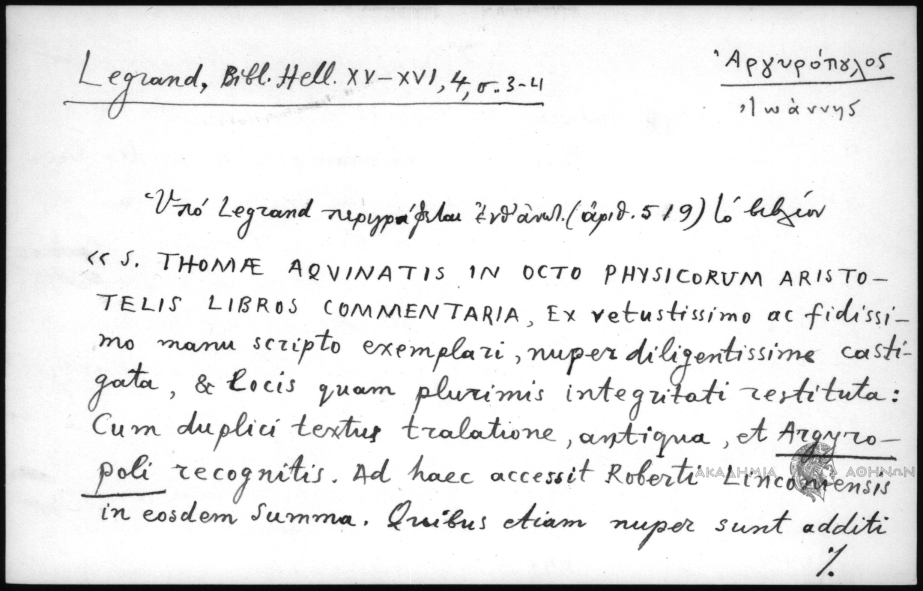 Legrand, Bibl. Hell. XV–XVI, 4, σ. 3-4
Ἀργυρόπουλος
Ἰωάννης
Ὑπό Legrand περιγράφεται ἐνθ' ἀνωτ. (ἀριθ. 519) τό βιβλίον
« S. THOMÆ AQVINATIS IN OCTO PHYSICORUM ARISTO-
TELIS LIBROS COMMENTARIA, Ex vetustissimo ac fidissi-
mo manu scripto exemplari, nuper diligentissime casti-
gata, & locis quam plurimis integritati restituta:
Cum duplici textus tralatione, antiqua, et Argyro-
poli recognitis. Ad haec accessit Roberti Linconiensis
in eosdem Summa. Quibus etiam nuper sunt additi
ΑΚΑΔΗΜΙΑ ΑΘΗΝΩΝ
%.